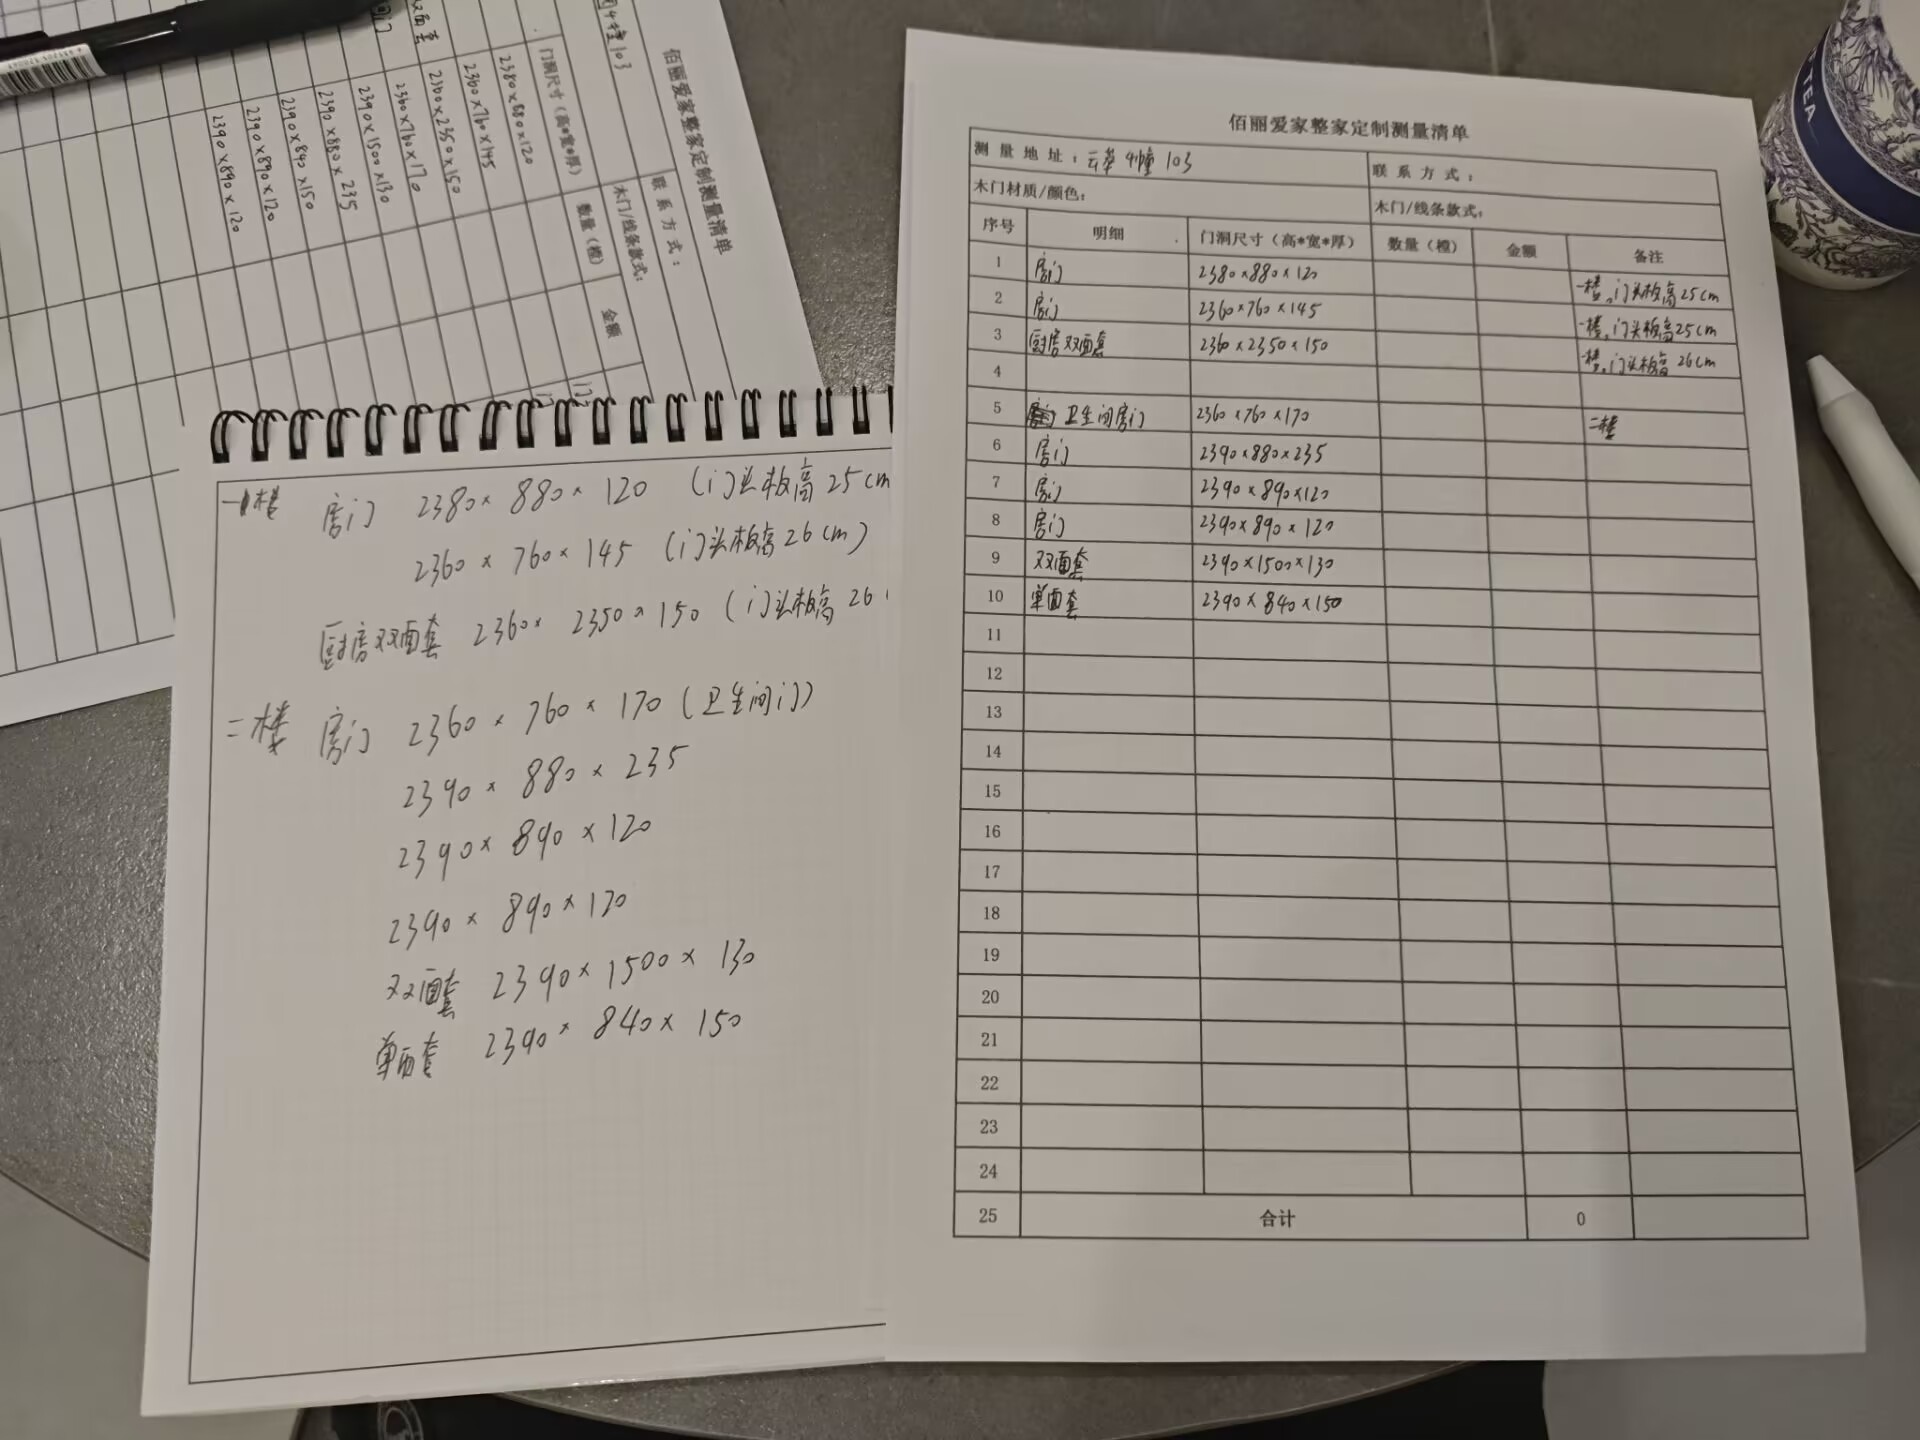 佰丽爱家整家定制测量清单
测 量 地 址 : 云萃 4幢 103 联 系 方 式 :
木门材质/颜色: 木门/线条款式:
序号 明细 门洞尺寸（高*宽*厚） 数量（樘） 金额 备注
1 房门 2380×880×120 一楼,门头板高25cm
2 房门 2360×760×145 一楼,门头板高25cm
3 厨房双面套 2360×2350×150 一楼,门头板高26cm
4
5 卫生间房门 2360×760×170 二楼
6 房门 2390×880×235
7 房门 2390×890×120
8 房门 2390×890×120
9 双面套 2390×1500×130
10 单面套 2390×840×150
11
12
13
14
15
16
17
18
19
20
21
22
23
24
25 合计 0
一楼 房门 2380×880×120 (门头板高25cm
2360×760×145 (门头板高26cm)
厨房双面套 2360×2350×150 (门头板高26
二楼 房门 2360×760×170 (卫生间门)
2390×880×235
2390×890×120
2390×890×120
双面套 2390×1500×130
单面套 2390×840×150
佰丽爱家整家定制测量清单
4幢103 联 系 方 式 :
木门/线条款式:
门洞尺寸（高*宽*厚） 数量（樘） 金额
2380×880×120
2360×760×145
2360×2350×150
2360×760×170
2390×1500×130
2390×880×235
2390×840×150
2390×890×120
2390×890×120
双面套
TEA